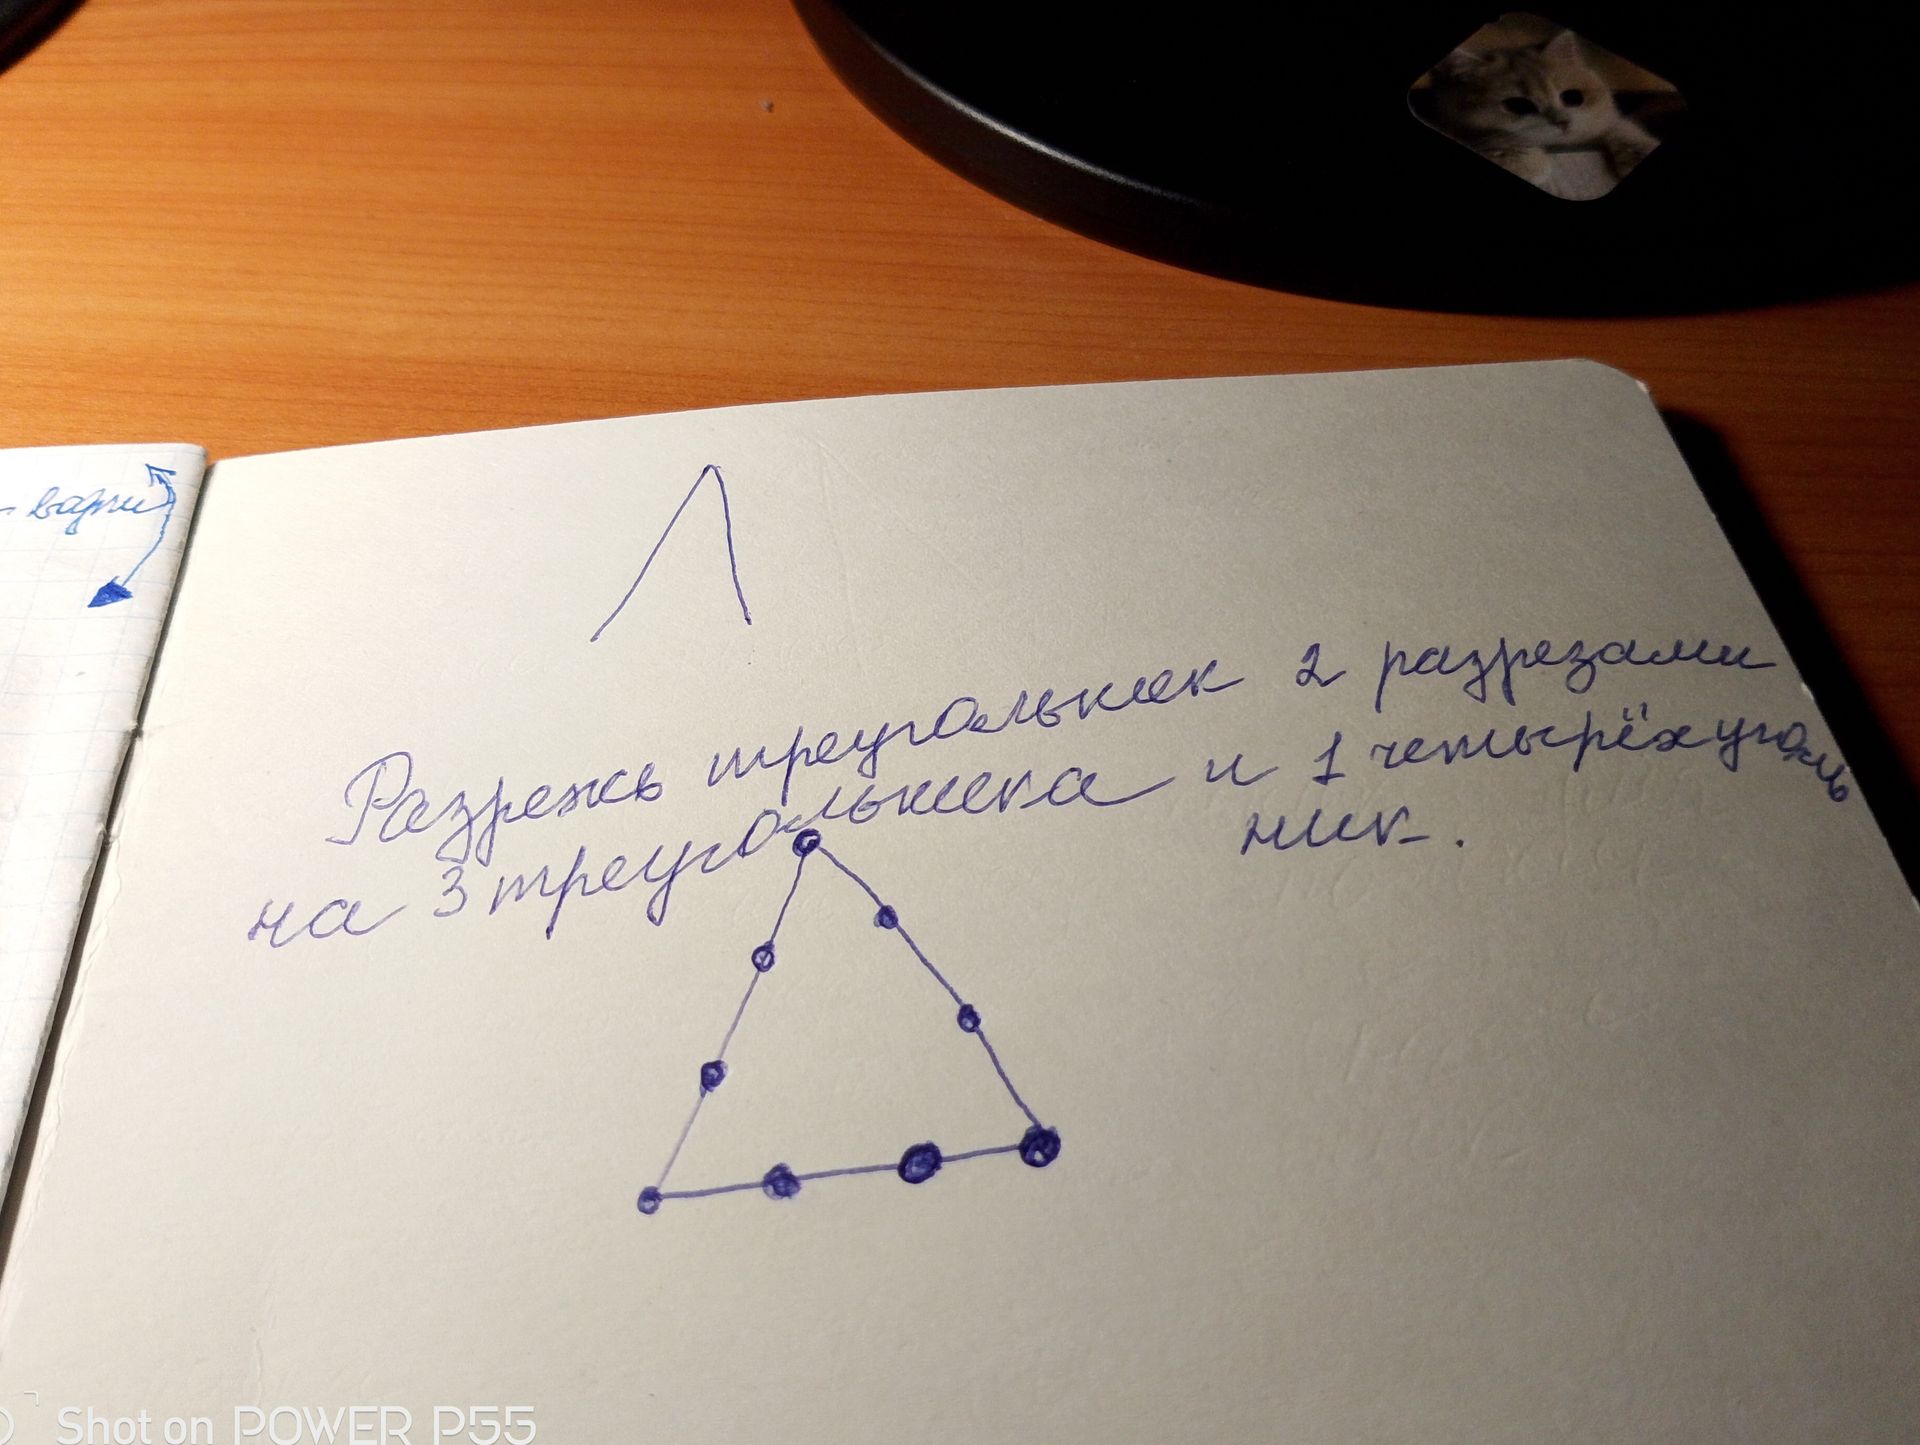 вари
Разрежь треугольник 2 разрезами
на 3 треугольника и 1 четырёхуголь
ник.
Shot on POWER P55